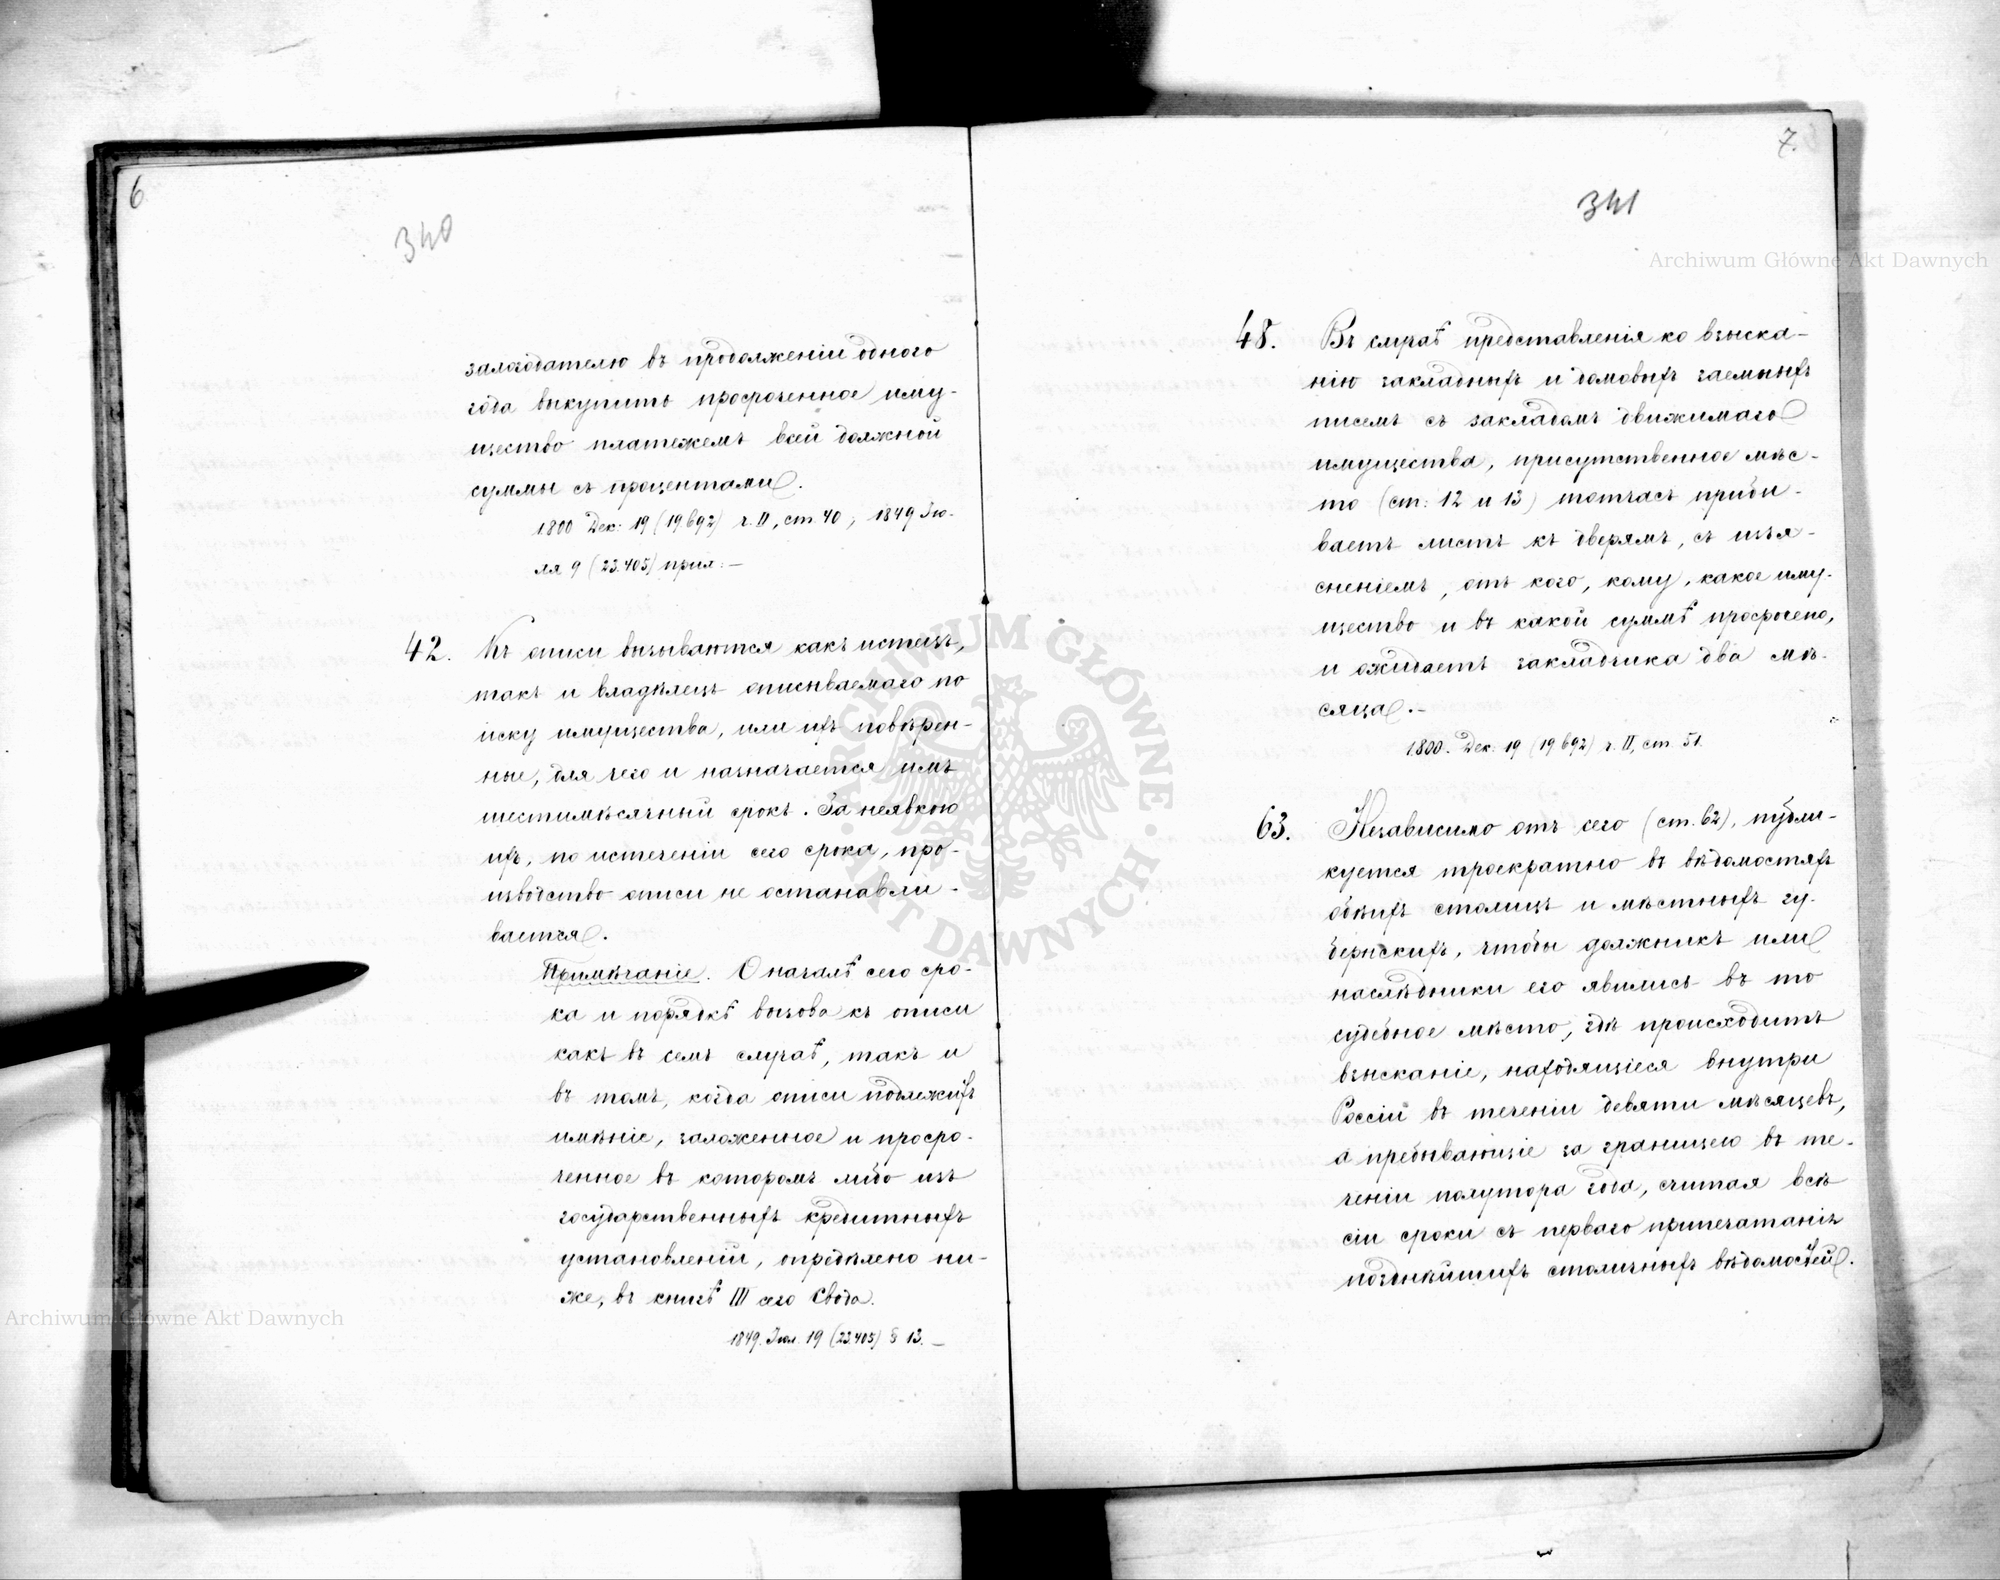 6
340
залогодателю въ продолженіи одного
года выкупить просроченное иму-
щество платежемъ всей должной
суммы съ процентами.
1800 Дек: 19 (19.692) ч. II, ст. 40; 1849 Ію-
ля 9 (23.405) прил: —
42. Къ описи вызываются какъ истецъ,
такъ и владѣлецъ описываемаго по
иску имущества, или ихъ повѣрен-
ные, для чего и назначается имъ
шестимѣсячный срокъ. За неявкою
ихъ, по истеченіи сего срока, про-
изводство описи не останавли-
вается.
Примѣчаніе. О началѣ сего сро-
ка и порядкѣ вызова къ описи
какъ въ семъ случаѣ, такъ и
въ томъ, когда описи подлежитъ
имѣніе, заложенное и просро-
ченное въ которомъ либо изъ
государственныхъ кредитныхъ
установленій, опредѣлено ни-
же, въ книгѣ III сего Свода.
1849. Іюл. 19 (23.405) § 13. —
7.
341
48. Въ случаѣ представленія ко взыска-
нію закладныхъ и домовыхъ заемныхъ
писемъ съ закладомъ движимаго
имущества, присутственное мѣс-
то (ст: 12 и 13) тотчасъ приби-
ваетъ листъ къ дверямъ, съ изъя-
сненіемъ, отъ кого, кому, какое иму-
щество и въ какой суммѣ просрочено,
и ожидаетъ закладчика два мѣ-
сяца. —
1800. Дек. 19 (19692) ч. II, ст. 51.
63. Независимо отъ сего (ст. 62), публи-
куется троекратно въ вѣдомостяхъ
обѣихъ столицъ и мѣстныхъ гу-
бернскихъ, чтобы должникъ или
наслѣдники его явились въ то
судебное мѣсто, гдѣ происходитъ
взысканіе, находящіеся внутри
Россіи въ теченіи девяти мѣсяцевъ,
а пребывающіе за границею въ те-
ченіи полутора года, считая всѣ
сіи сроки съ перваго припечатанія
позднѣйшихъ столичныхъ вѣдомостей.
Archiwum Główne Akt Dawnych
Archiwum Główne Akt Dawnych
ARCHIWUM GŁÓWNE AKT DAWNYCH